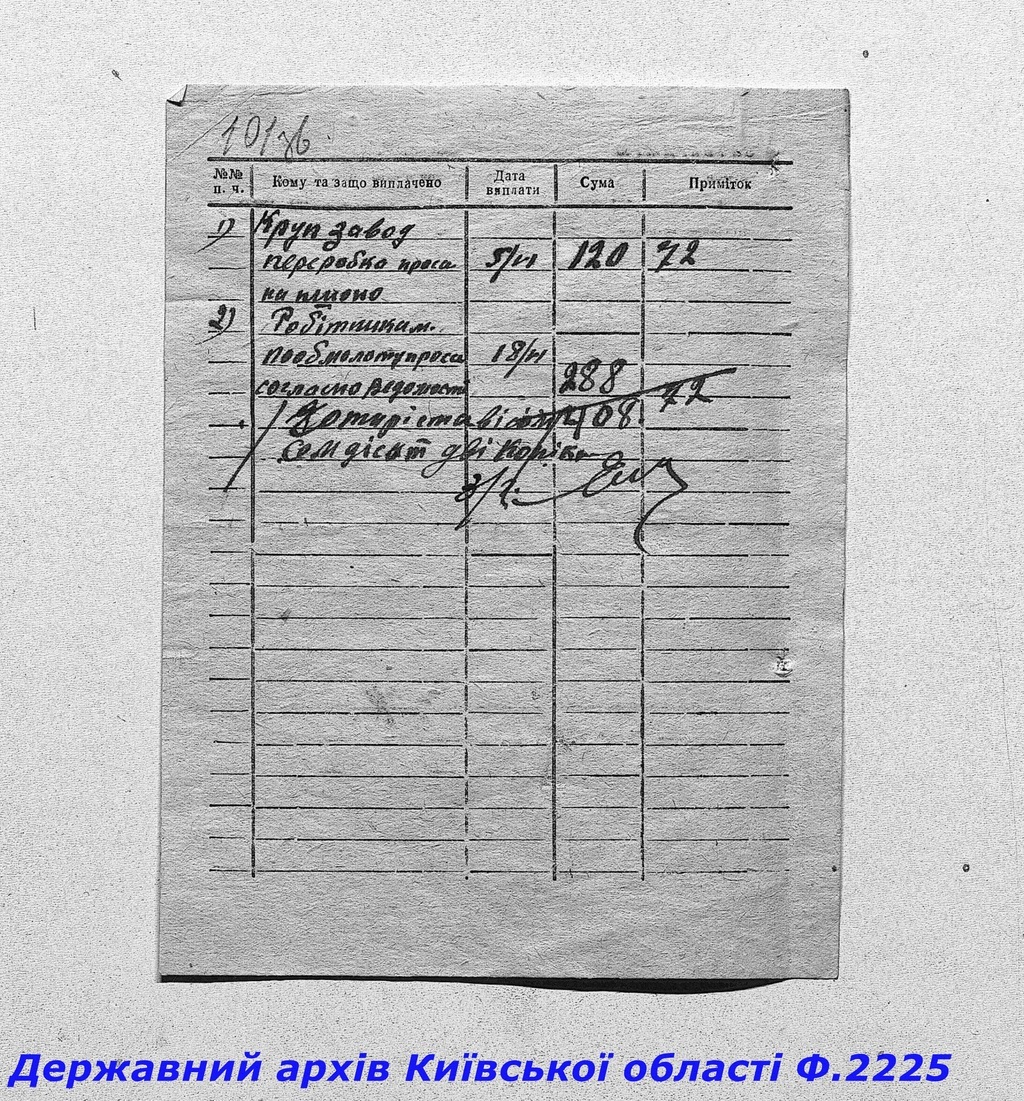 101зв.
№№ п. ч. Кому та защо виплачено Дата виплати Сума Приміток
1) Круп завод
переробка проса 5/VI 120 72
на пшоно
2) Робітникам.
по обмолоту проса 18/VI
согласно ведомости 288
/ Чотиріста вісім 408 72
семдісят дві копійки
Державний архів Київської області Ф.2225